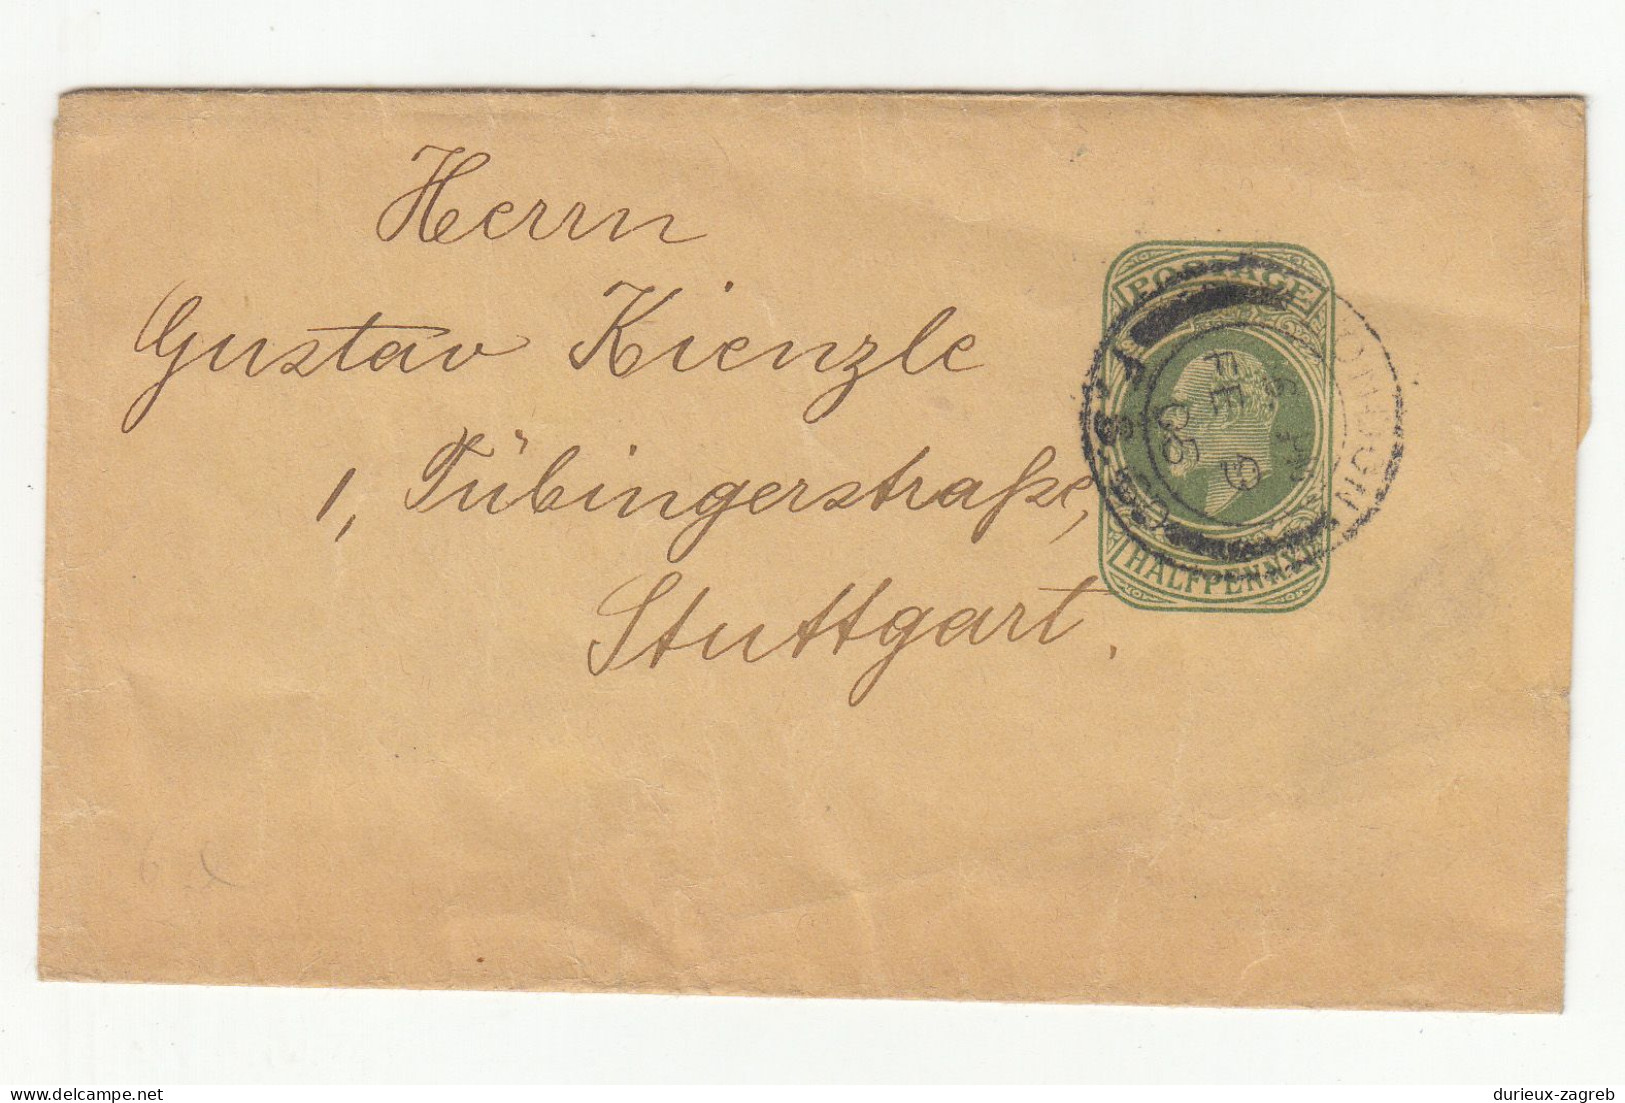 Herrn
Gustav Kienzle
1, Tübingerstraße,
Stuttgart.
POSTAGE
HALFPENNY
LONDON
F.S.
FE
06
durieux-zagreb